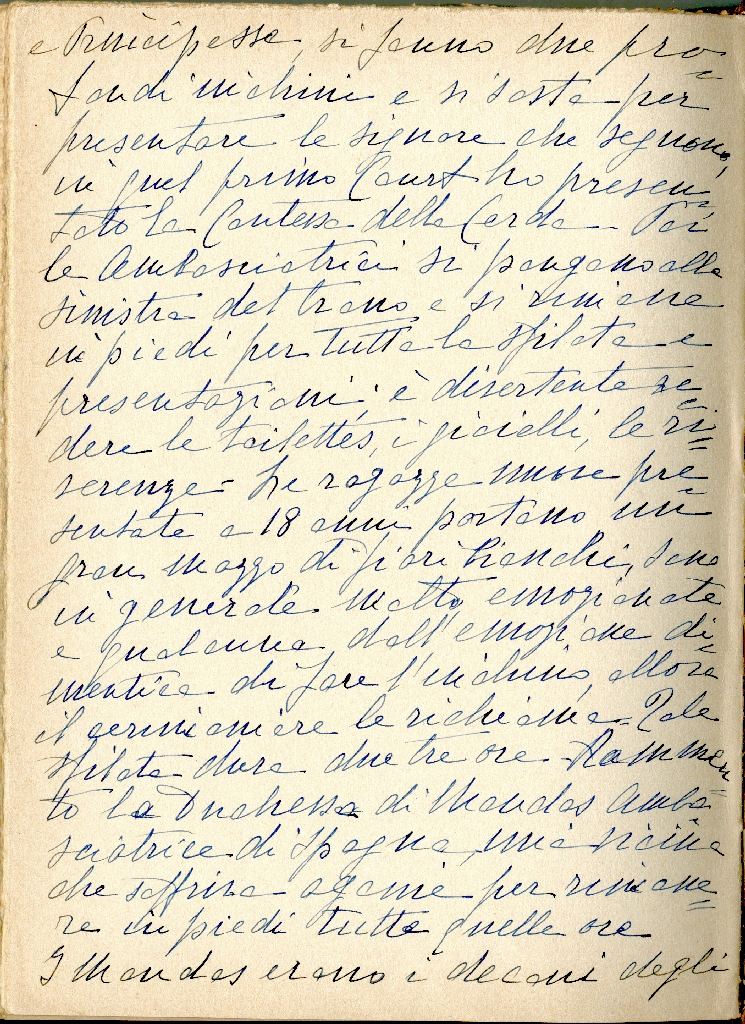 e Principesse, si fanno due pro=
fondi inchini e si sosta per
presentare le signore che seguono,
in quel primo Court ho presen=
tato la Contessa della Cerda - Poi
le Ambasciatrici si pongono alla
sinistra del trono e si rimane
in piedi per tutta la sfilata e
presentazioni; è divertente ve=
dere le toilettes, i gioielli, le ri=
verenze - Le ragazze nuove pre=
sentate a 18 anni portano un
gran mazzo di fiori bianchi, sono
in generale molto emozionate
e qualcuna dall'emozione di=
mentica di fare l'inchino, allora
il cerimoniere le richiama. Tale
sfilata dura due tre ore - Rammen
to la Duchessa di Mandas Amba=
sciatrice di Spagna, mia vicina
che soffriva agonie per rimane=
re in piedi tutte quelle ore
I Mandas erano i decani degli